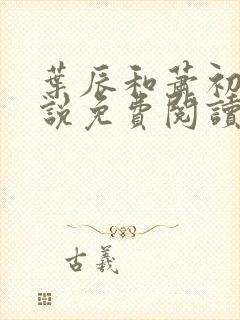 葉辰和蕭初
說免費閱讀
古義